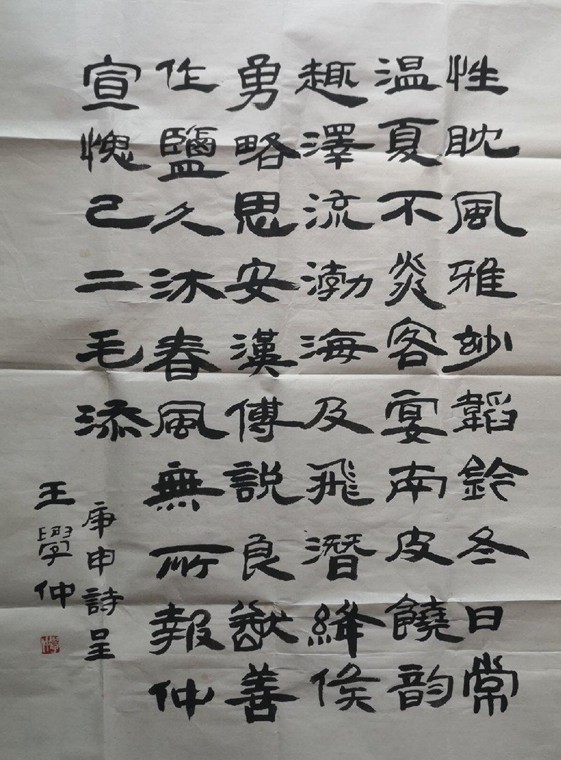 性耽風雅妙韜鈐冬日常
温夏不炎客宴南皮饒韵
趣澤流渤海及飛潛絳侯
勇略思安漢傅説良猷善
作鹽久沐春風無所報仲
宣愧己二毛添
庚申詩呈
王學仲